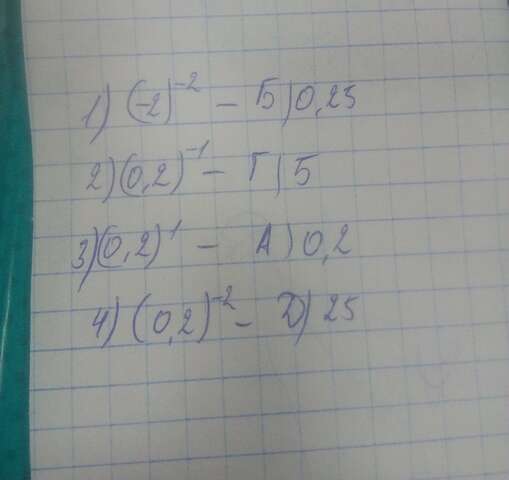 1) (-2)⁻² - Б) 0,25
2) (0,2)⁻¹ - Г) 5
3) (0,2)¹ - А) 0,2
4) (0,2)⁻² - Д) 25